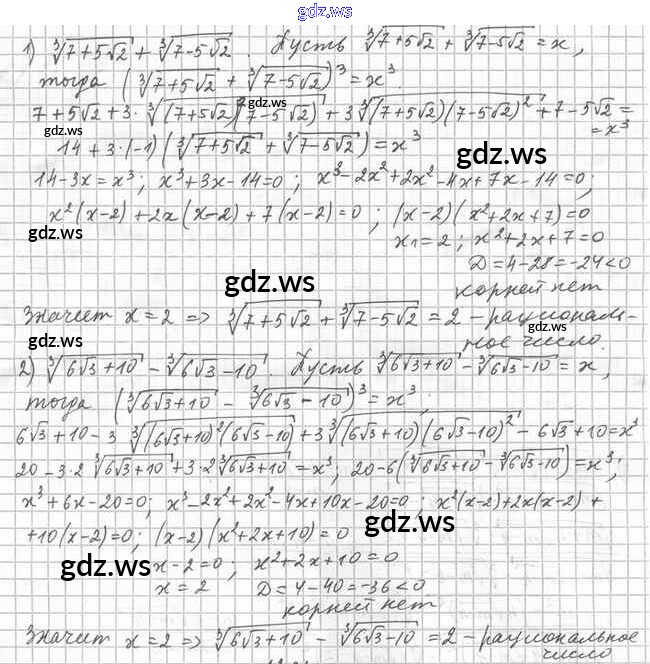 gdz.ru
1) ∛(7+5√2) + ∛(7-5√2). Пусть ∛(7+5√2) + ∛(7-5√2) = x,
тогда (∛(7+5√2) + ∛(7-5√2))³ = x³.
7+5√2 + 3·∛((7+5√2)²(7-5√2)) + 3∛((7+5√2)(7-5√2)²) + 7-5√2 =
gdz.ru
= x³
14 + 3·(-1)(∛(7+5√2) + ∛(7-5√2)) = x³
gdz.ru
14-3x = x³; x³+3x-14=0; x³-2x²+2x²-4x+7x-14=0;
x²(x-2)+2x(x-2)+7(x-2)=0; (x-2)(x²+2x+7)=0
gdz.ru
x₁=2; x²+2x+7=0
D=4-28=-24<0
gdz.ru
корней нет
Значит x=2 => ∛(7+5√2) + ∛(7-5√2) = 2 - рациональ-
gdz.ru
ное число.
2) ∛(6√3+10) - ∛(6√3-10). Пусть ∛(6√3+10) - ∛(6√3-10) = x,
gdz.ru
тогда (∛(6√3+10) - ∛(6√3-10))³ = x³;
6√3+10-3∛((6√3+10)²(6√3-10)) + 3∛((6√3+10)(6√3-10)²) - 6√3+10=x³
20-3·2∛(6√3+10)+3·2∛(6√3+10)=x³; 20-6(∛(6√3+10)-∛(6√3-10))=x³;
gdz.ru
x³+6x-20=0; x³-2x²+2x²-4x+10x-20=0; x²(x-2)+2x(x-2)+
gdz.ru
+10(x-2)=0; (x-2)(x²+2x+10)=0
gdz.ru
x-2=0; x²+2x+10=0
x=2 D=4-40=-36<0
корней нет
gdz.ru
Значит x=2 => ∛(6√3+10) - ∛(6√3-10) = 2 - рациональное
число